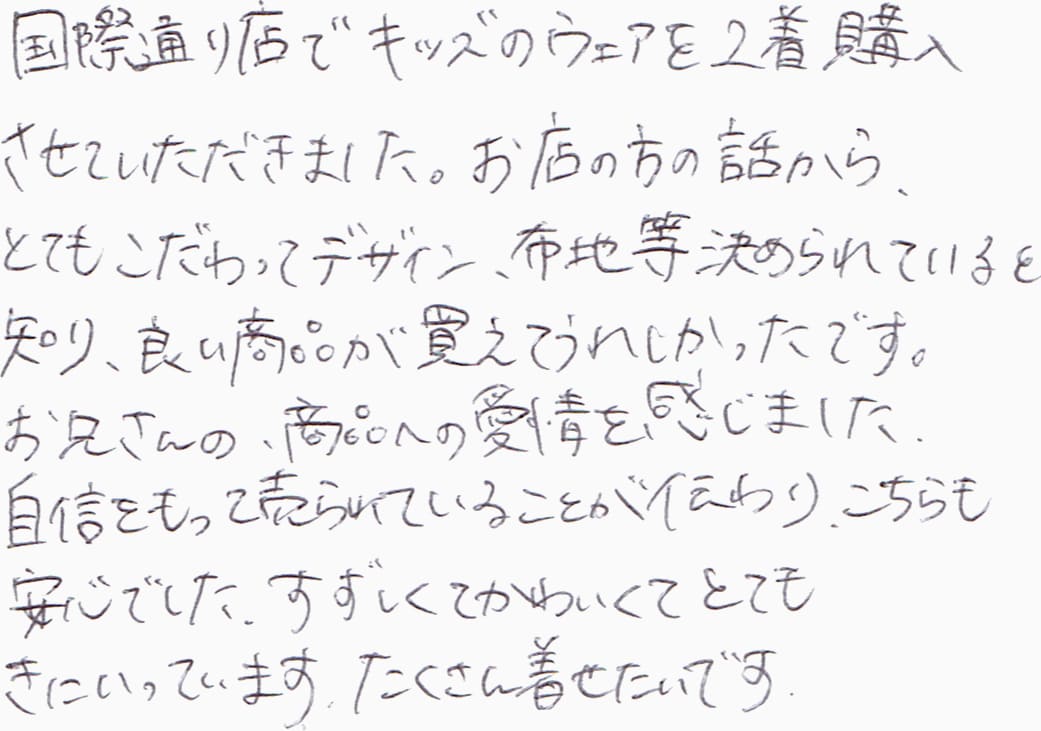 国際通り店でキッズのウェアを2着購入
させていただきました。お店の方の話から、
とてもこだわってデザイン、布地等決められていると
知り、良い商品が買えてうれしかったです。
お兄さんの、商品への愛情を感じました、
自信をもって売られていることが伝わり、こちらも
安心でした、すずしくてかわいくてとても
きにいっています、たくさん着せたいです、